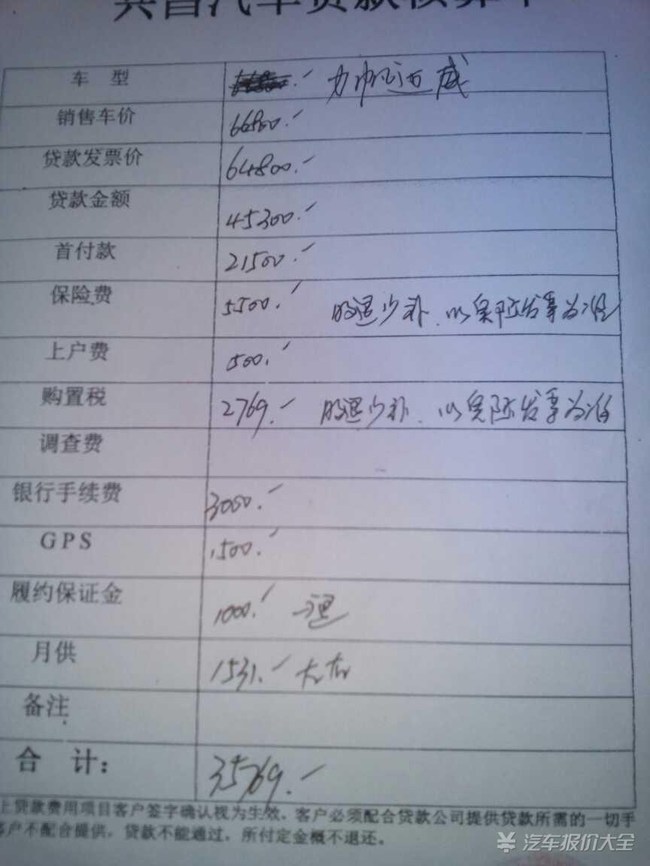 兴昌汽车贷款核算单
车 型 力帆迈威
销售车价 66800.-
贷款发票价 64800.-
贷款金额 45300.-
首付款 21500.-
保险费 5500.- 多退少补.以实际发票为准
上户费 500.-
购置税 2769.- 多退少补.以实际发票为准
调查费
银行手续费 3000.-
GPS 1500.-
履约保证金 1000.- 退
月供 1531.- 左右
备注
合 计: 35769.-
上贷款费用项目客户签字确认视为生效,客户必须配合贷款公司提供贷款所需的一切手
客户不配合提供,贷款不能通过,所付定金概不退还。
汽车报价大全